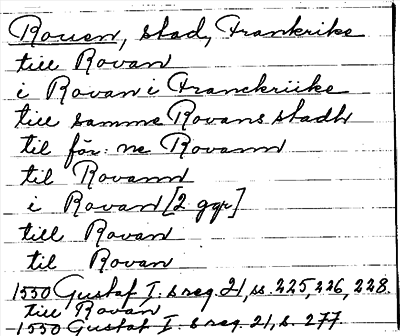 Rouen, stad, Frankrike
till Rovan
i Rovan i Franckriike
till samme Rovans stadh
til för:ne Rovann
til Rovann
i Rovan [2 ggr]
till Rovan
til Rovan
1550 Gustaf I:s reg. 21, ss. 225, 226, 228.
till Rovan
1550 Gustaf I:s reg. 21, s. 277